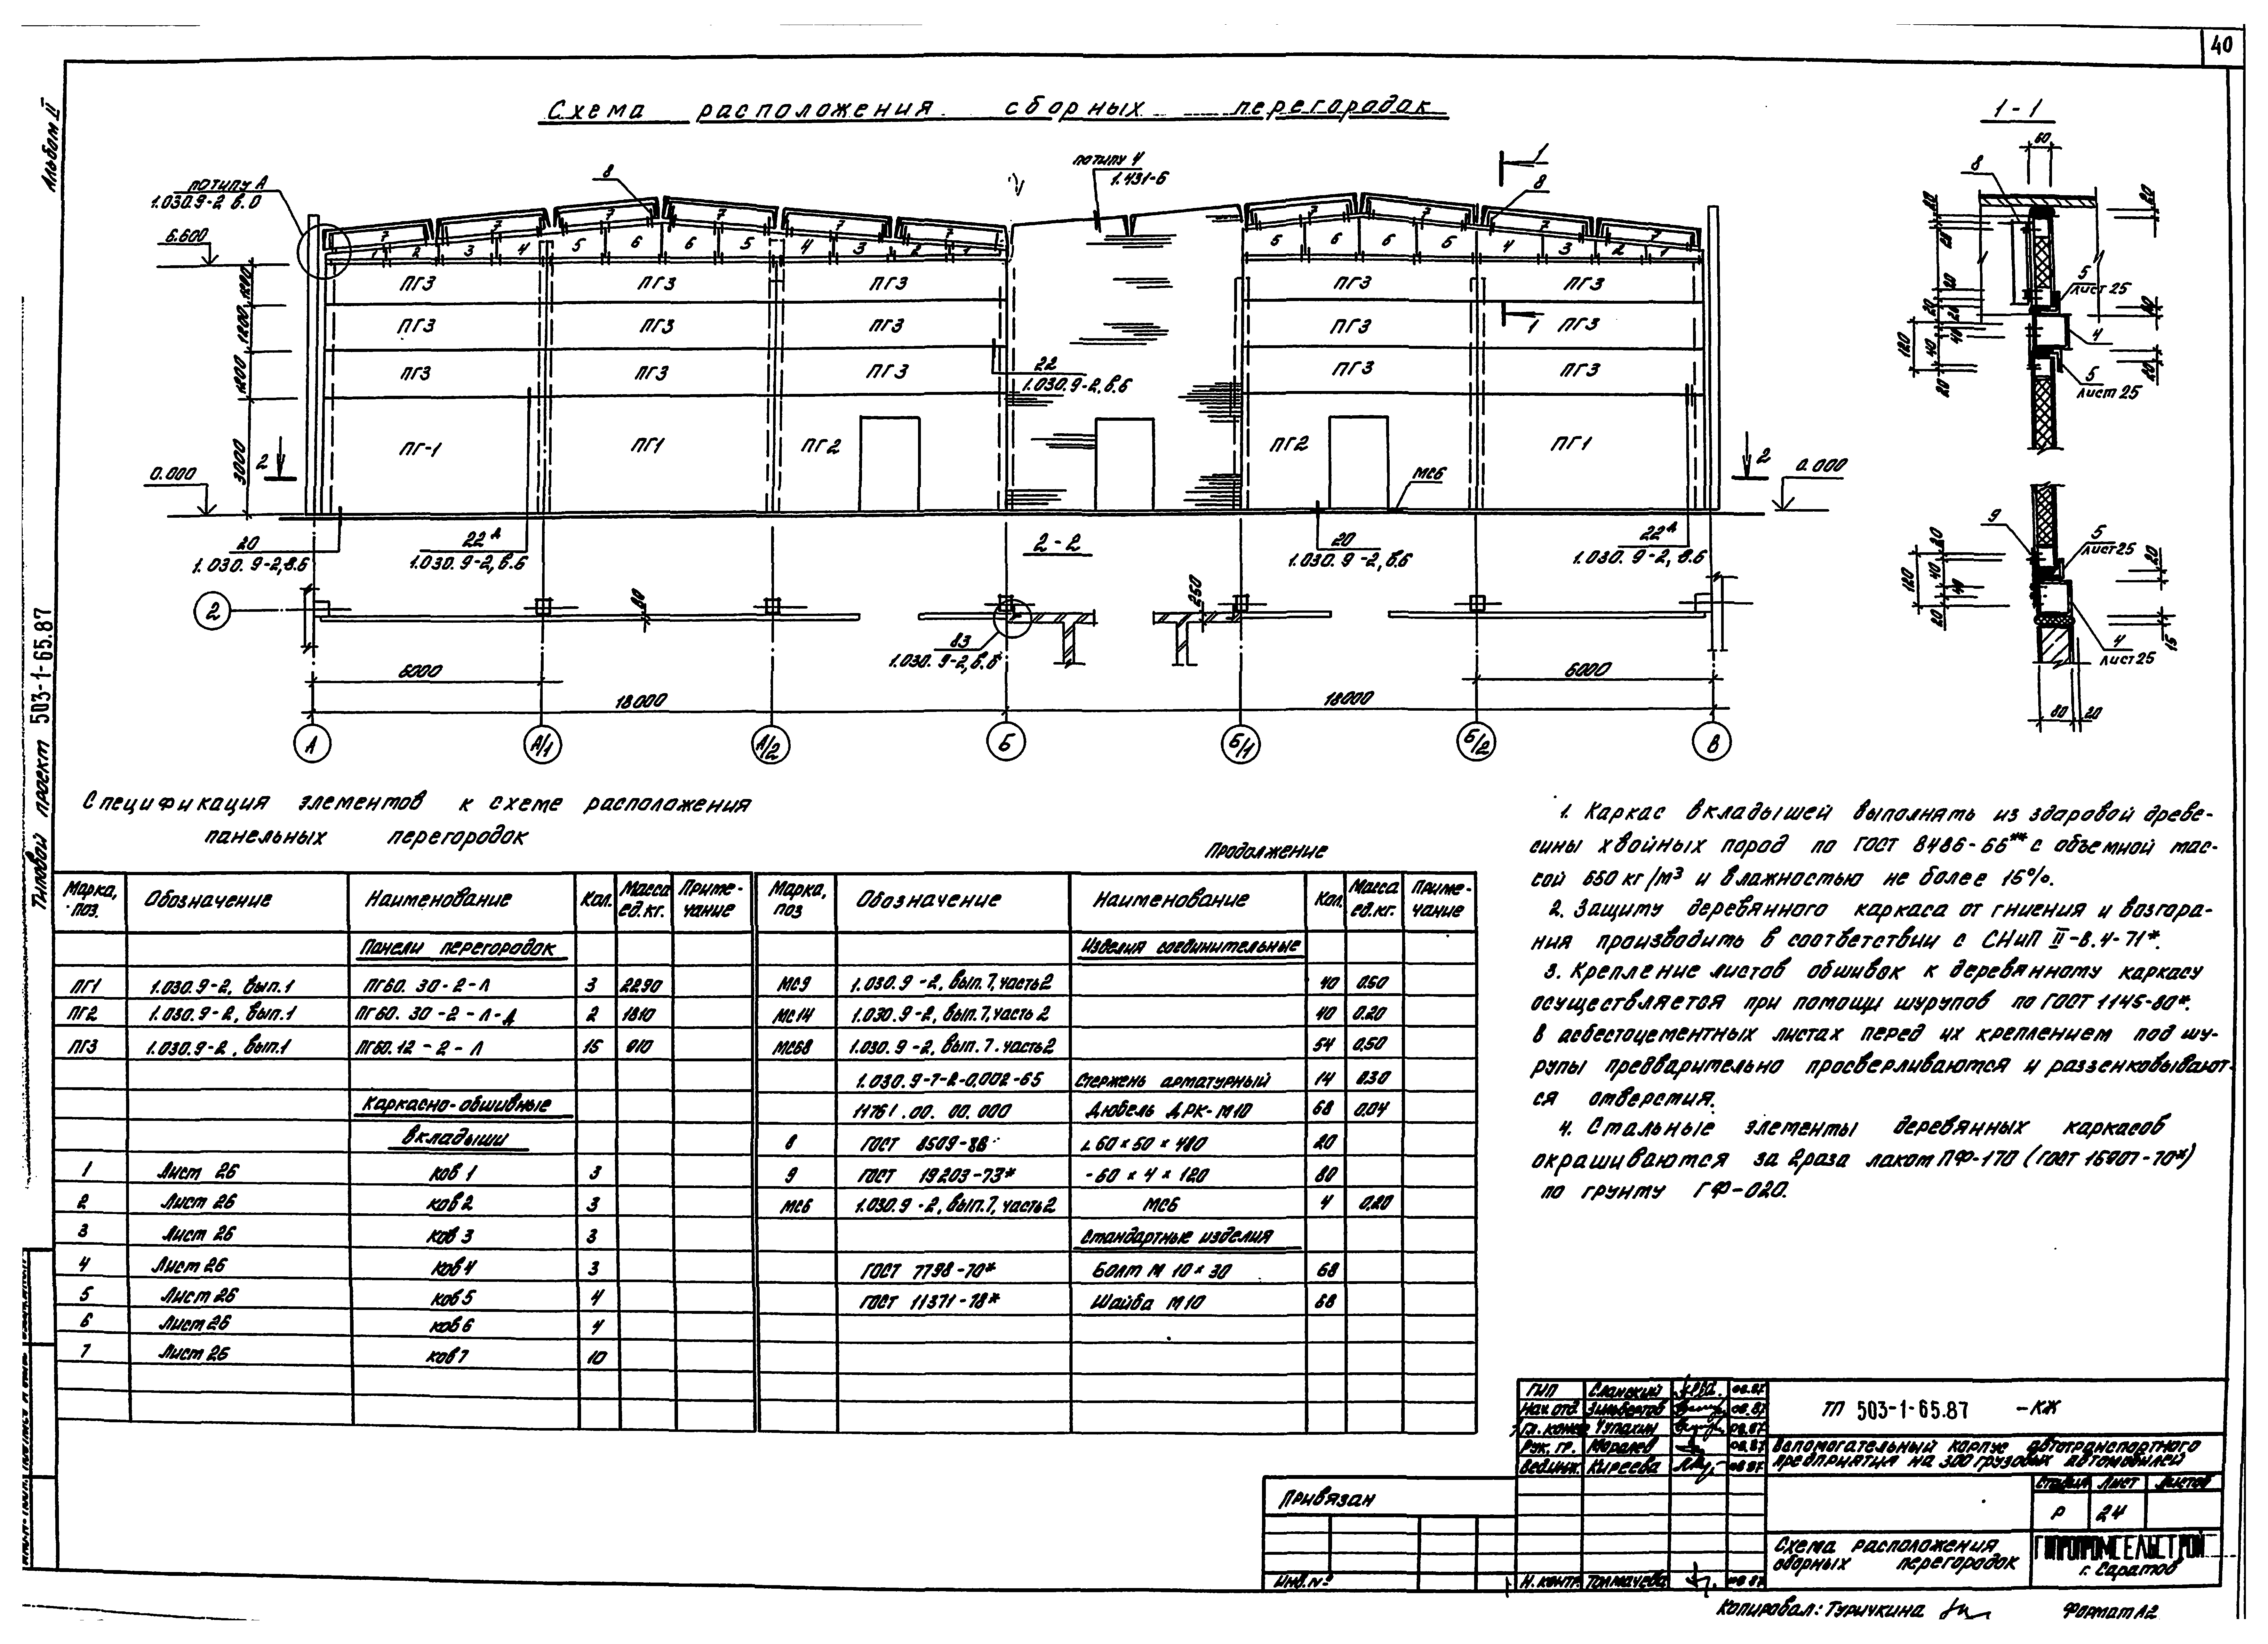 40
Альбом II
Типовой проект 503-1-65.87
Схема расположения сборных перегородок
1-1
по типу А
1.030.9-2 в.0
8
по типу 4
1.431-6
1
8
6.600
7 7 7 7 7 7 7 7 7 7
1 2 3 4 5 6 6 5 4 3 2 1
5 6 6 5 4 3 2 1
ПГ3 ПГ3 ПГ3 ПГ3 ПГ3
ПГ3 ПГ3 ПГ3 1 ПГ3 ПГ3
ПГ3 ПГ3 ПГ3 ПГ3 ПГ3
22
1.030.9-2, в.6
ПГ-1 ПГ1 ПГ2 ПГ2 ПГ1
1200
1200
1200
3000
2
2
0.000
0.000
МС6
20
1.030.9-2, в.6
22А
1.030.9-2, в.6
2-2
20
1.030.9-2, в.6
22А
1.030.9-2, в.6
2
80
250
83
1.030.9-2, в.6
6000
6000
18000
18000
А
А/1
А/2
Б
Б/1
Б/2
В
60
8
20
5
Лист 25
4
5
Лист 25
120
40
20
9
5
Лист 25
120
40
20
20
4
Лист 25
15
80
20
Спецификация элементов к схеме расположения
панельных перегородок
Продолжение
Марка, поз. Обозначение Наименование Кол. Масса ед.кг. Примечание
Панели перегородок
ПГ1 1.030.9-2, вып.1 ПГ60.30-2-Л 3 2290
ПГ2 1.030.9-2, вып.1 ПГ60.30-2-Л-Д 2 1810
ПГ3 1.030.9-2, вып.1 ПГ60.12-2-Л 15 910
Каркасно-обшивные
вкладыши
1 Лист 26 КОВ 1 3
2 Лист 26 КОВ 2 3
3 Лист 26 КОВ 3 3
4 Лист 26 КОВ 4 3
5 Лист 26 КОВ 5 4
6 Лист 26 КОВ 6 4
7 Лист 26 КОВ 7 10
Марка, поз Обозначение Наименование Кол. Масса ед.кг. Примечание
Изделия соединительные
МС9 1.030.9-2, вып.7, часть 2 40 0.50
МС14 1.030.9-2, вып.7, часть 2 40 0.20
МС68 1.030.9-2, вып.7. часть 2 54 0,50
1.030.9-7-2-0,002-65 Стержень арматурный 14 0.30
11761.00.00.000 Дюбель ДРК-М10 68 0.04
8 ГОСТ 8509-86 ∟60×50×480 20
9 ГОСТ 19203-73* -60×4×120 80
МС6 1.030.9-2, вып.7, часть 2 МС6 4 0,20
Стандартные изделия
ГОСТ 7798-70* Болт М 10×30 68
ГОСТ 11371-78* Шайба М10 68
1. Каркас вкладышей выполнять из здоровой древе-
сины хвойных пород по ГОСТ 8486-66** с объемной мас-
сой 650 кг/м3 и влажностью не более 15%.
2. Защиту деревянного каркаса от гниения и возгора-
ния производить в соответствии с СНиП II-В.4-71*.
3. Крепление листов обшивок к деревянному каркасу
осуществляется при помощи шурупов по ГОСТ 1145-80*.
В асбестоцементных листах перед их креплением под шу-
рупы предварительно просверливаются и раззенковывают-
ся отверстия.
4. Стальные элементы деревянных каркасов
окрашиваются за 2 раза лаком ПФ-170 (ГОСТ 15907-70*)
по грунту ГФ-020.
ГИП Сланский 08.87
Нач. отд. Зильбертов 08.87
Гл. конс. Чупахин 08.87
Рук. гр. Моралев 08.87
Вед.инж. Киреева 08.87
Н. контр. Толмачева 08.87
ТП 503-1-65.87 -КЖ
Вспомогательный корпус автотранспортного
предприятия на 300 грузовых автомобилей
Стадия Лист Листов
Р 24
Схема расположения
сборных перегородок
ГИПРОПРОМСЕЛЬСТРОЙ
г. Саратов
Привязан
Инв. №
Копировал: Туричкина
Формат А2